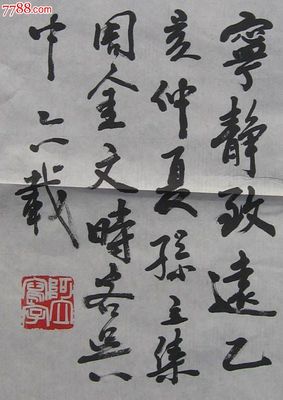 7788.com
寧靜致遠乙
亥仲夏孫立集
周金文時客吳
中六載